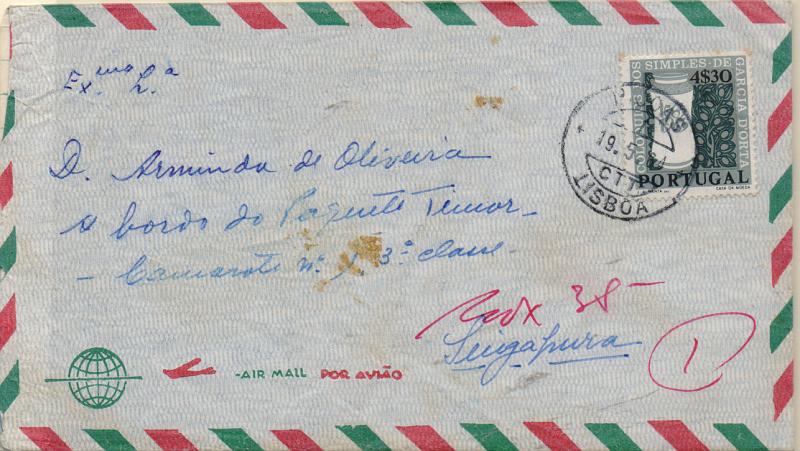 Ex.ma S.a
D. Arminda de Oliveira
A bordo do Paquete Timor
- Camarote nº 1 3ª classe -
38-
Singapura
1
AIR MAIL POR AVIÃO
SIMPLES · DE
GARCIA D'ORTA
4$30
PORTUGAL
CASA DA MOEDA
19. 5
CTT
LISBOA